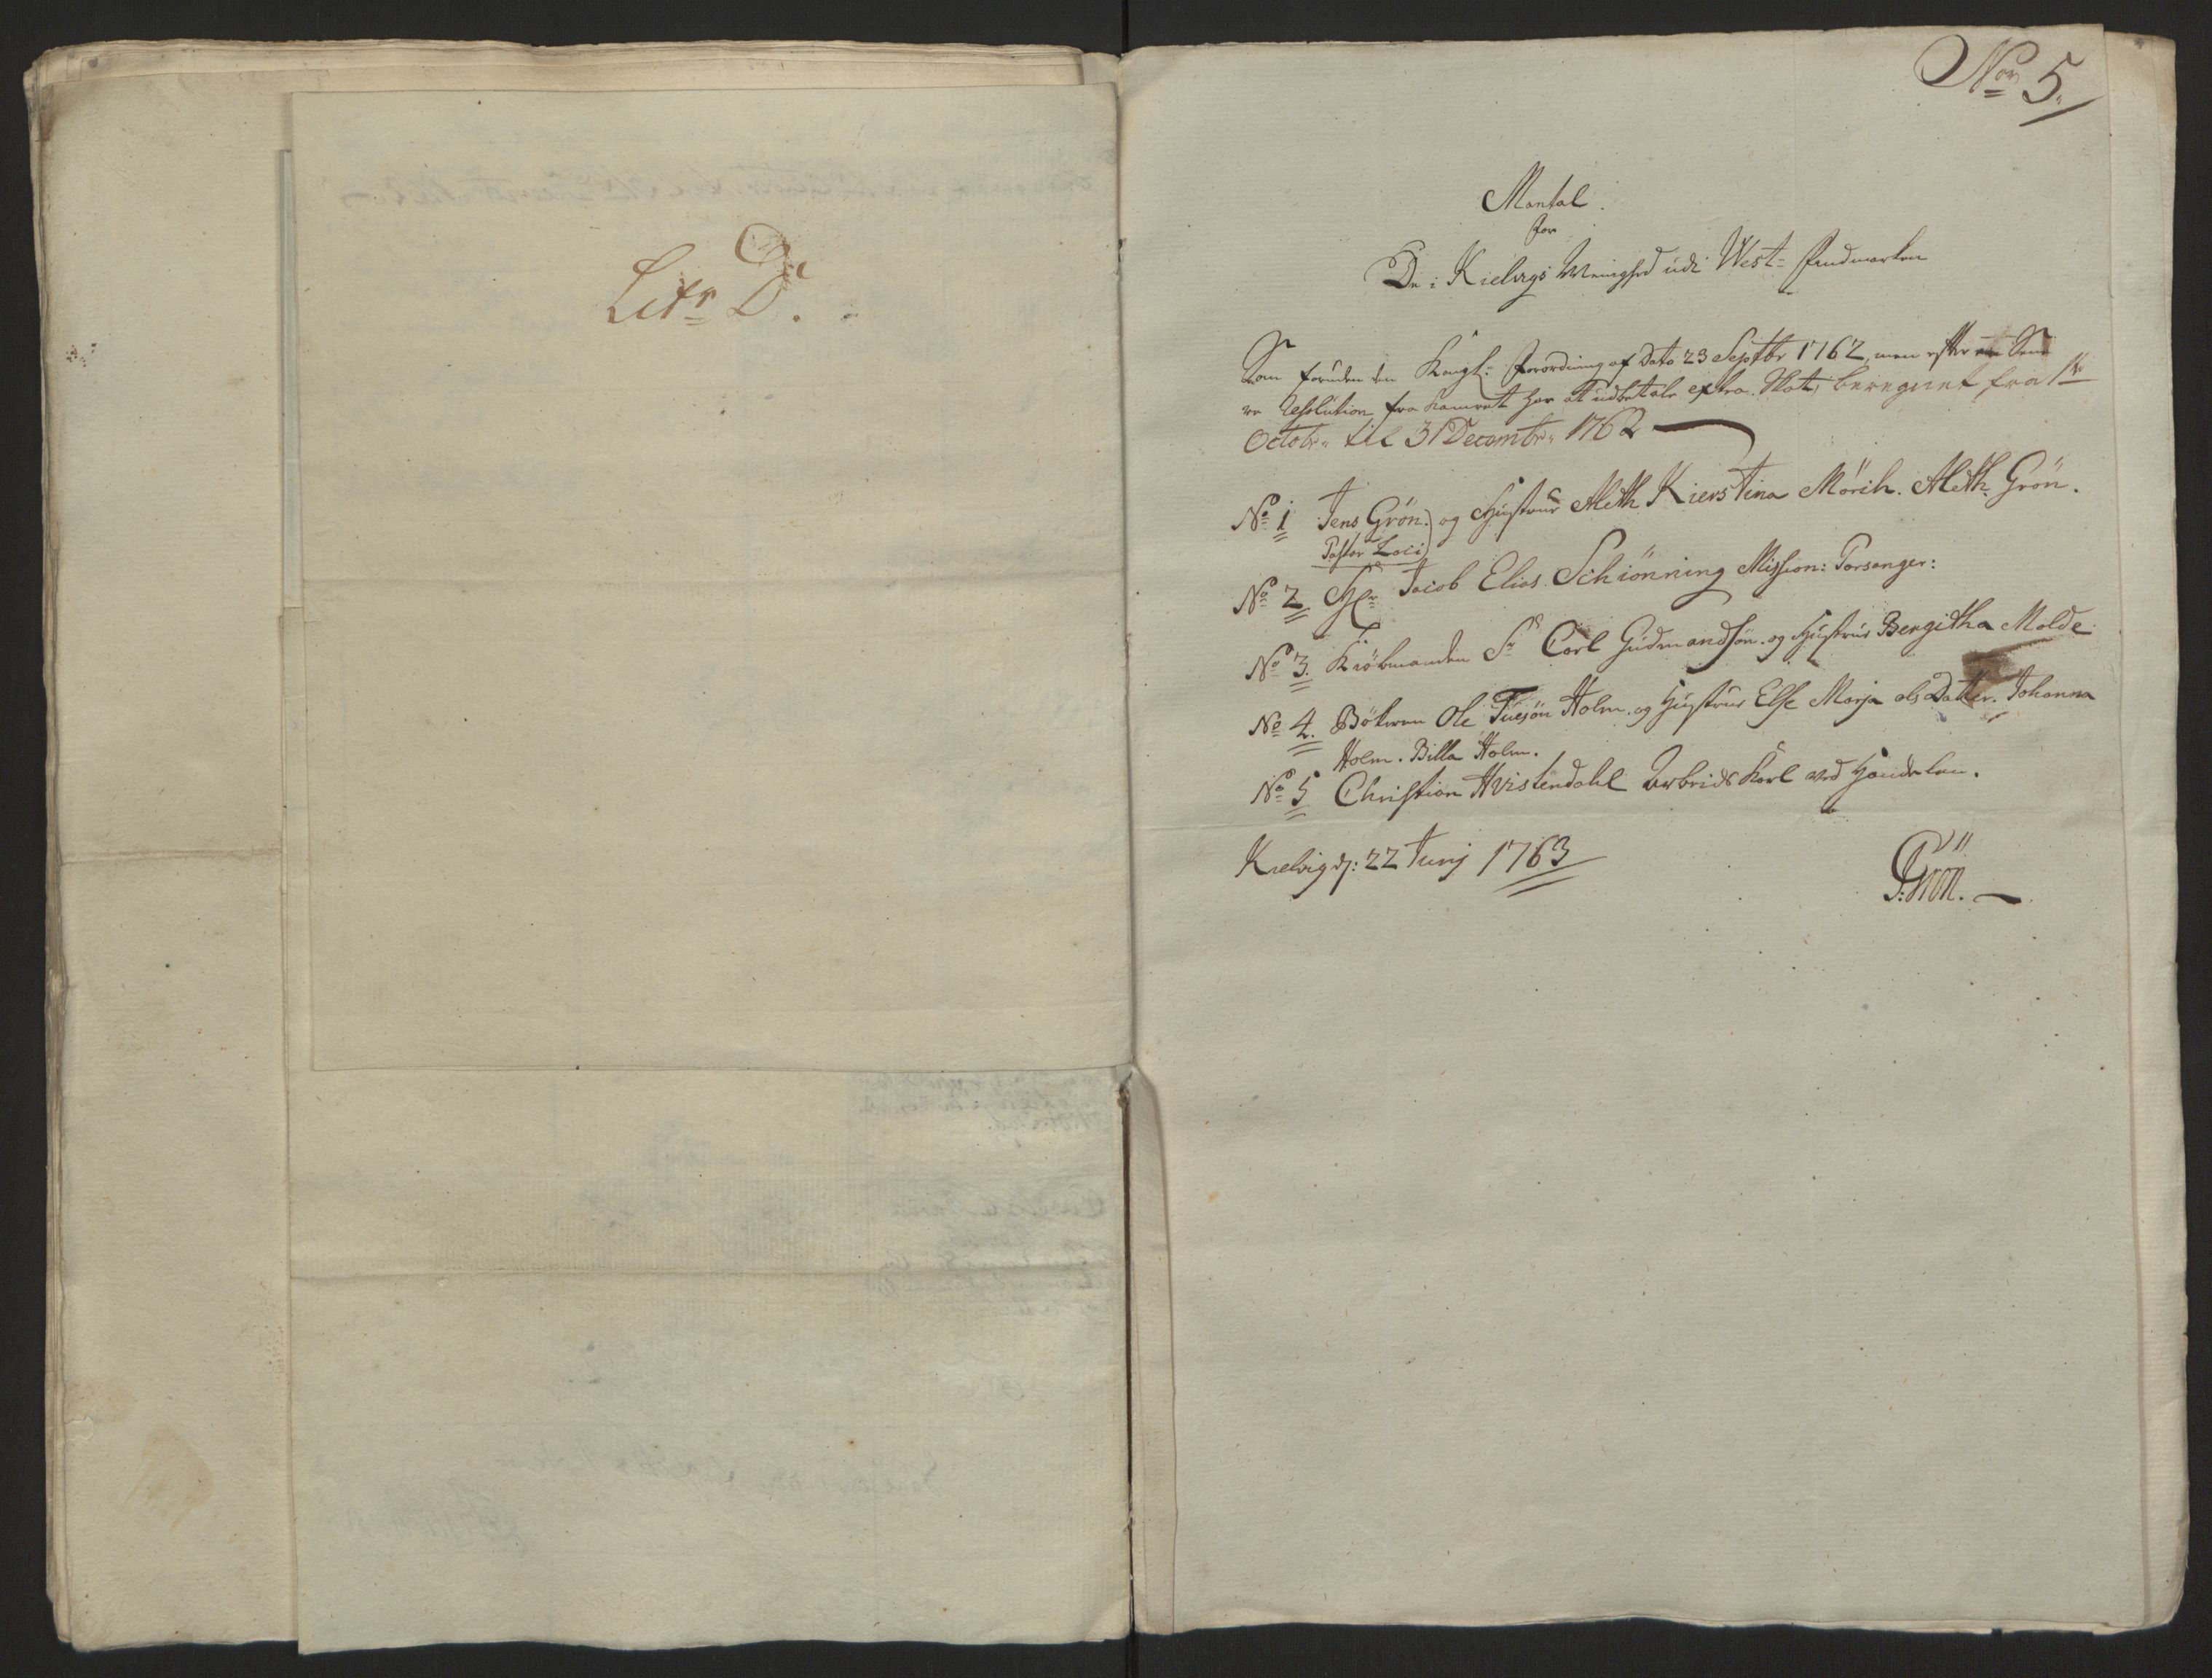 Litr D.
No 5.
Mantal
for
De i Kielvigs Menighed udi West-Findmarken
Som foruden den Kongl: Forordning af Dato 23 Septbr 1762, men efter Sene
re Resolution fra Kamret har at udbetale extra Skat, beregnet fra 1te
Octobr: til 31 Decembr: 1762
No 1 Jens Grön og Hustrue Aleth Kierstina Mörch. Aleth Grön.
Pastor Loci
No 2 Hr Jacob Elias Schiönning Mission: Porsanger:
No 3. Kiöbmanden Sr Carl Gudmandsön og Hustrue Bergitha Molde
No 4. Bökeren Ole Tuesön Holm og Hustrue Else Marja olsDatter. Johanna
Holm. Billa Holm.
No 5 Christian Hvistendahl Arbeids Karl ved Handelen.
Kielvig d: 22 Junj 1763
J: Grön.